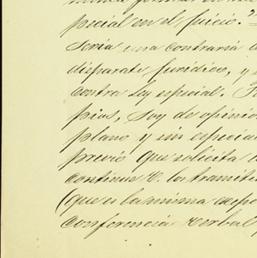 pecial en el juicio."
Seria una contraria
disparate juridico, y
contra ley especial.
pios, soy de opinion
plano y sin especial
previo que solicita
continue V. la tramita
(que es la misma espe
conferencia verbal